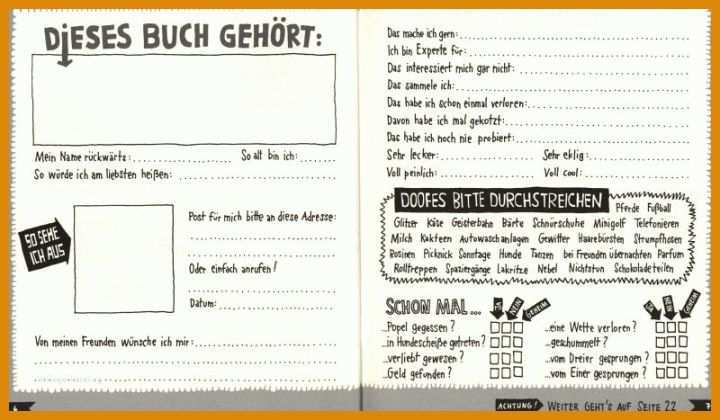 DIESES BUCH GEHÖRT:
Mein Name rückwärts:
So alt bin ich:
So würde ich am liebsten heißen:
SO SEHE
ICH AUS
Post für mich bitte an diese Adresse:
Oder einfach anrufen!
Datum:
Von meinen Freunden wünsche ich mir:
Das mache ich gern:
Ich bin Experte für:
Das interessiert mich gar nicht:
Das sammele ich:
Das habe ich schon einmal verloren:
Davon habe ich mal gekotzt:
Das habe ich noch nie probiert:
Sehr lecker: Sehr eklig:
Voll peinlich: Voll cool:
DOOFES BITTE DURCHSTREICHEN Pferde Fußball
Glitzer Käse Geisterbahn Bärte Schnürschuhe Minigolf Telefonieren
Milch Kakteen Autowaschanlagen Gewitter Haarebürsten Strumpfhosen
Rosinen Picknick Sonntage Hunde Tanzen bei Freunden übernachten Parfum
Rolltreppen Spaziergänge Lakritze Nebel Nichtstun Schokolade teilen
SCHON MAL... JA NEIN GEHEIM JA NEIN GEHEIM
...Popel gegessen? ...eine Wette verloren?
...in Hundescheiße getreten? ...geschummelt?
...verliebt gewesen? ...vom Dreier gesprungen?
...Geld gefunden? ...vom Einer gesprungen?
ACHTUNG! WEITER GEHT'S AUF SEITE 22